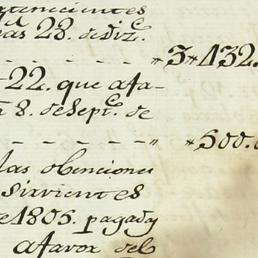 pertenecientes
as 28. de Diz.ᵉ
" 3 " 432.
22. que afa-
8. de Sept.ᵉ de
" 500.
las obenciones
sirvientes
e 1805. pagada
afavor del